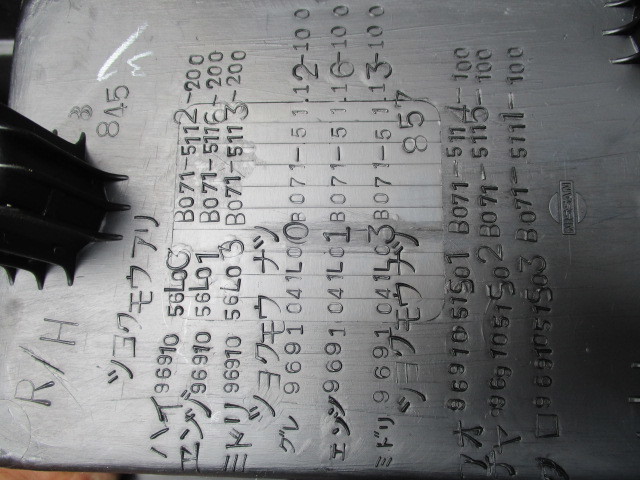 R/H
8
845
ショクモウアリ
ハイ 96910 56L00 B071-5112-200
エンジ 96910 56L01 B071-5116-200
ミドリ 96910 56L03 B071-5113-200
ショクモウ ナシ
グレ 96910 41L00 B071-5112-100
エンジ 96910 41L01 B071-5116-100
ミドリ 96910 41L03 B071-5113-100
857
ショクモウ ナシ
アオ 96910 51S01 B071-5114-100
チャ 96910 51S02 B071-5115-100
96910 51S03 B071-5111-100
NISSAN